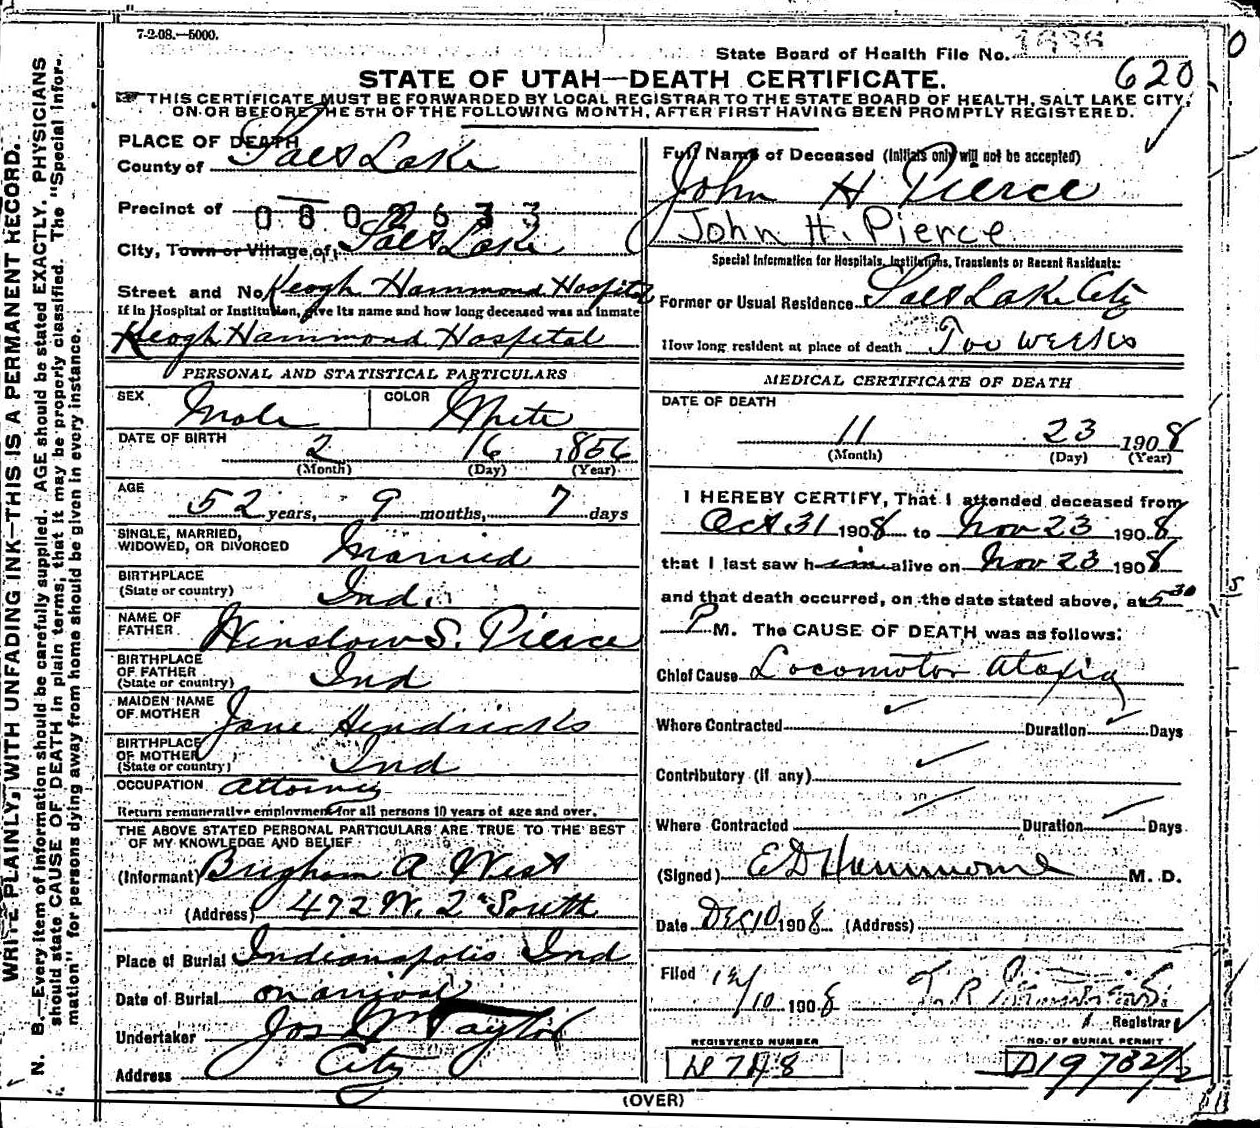 7-2-08.—5000.
State Board of Health File No.
620
STATE OF UTAH—DEATH CERTIFICATE.
THIS CERTIFICATE MUST BE FORWARDED BY LOCAL REGISTRAR TO THE STATE BOARD OF HEALTH, SALT LAKE CITY,
ON OR BEFORE THE 5TH OF THE FOLLOWING MONTH, AFTER FIRST HAVING BEEN PROMPTLY REGISTERED.
WRITE PLAINLY, WITH UNFADING INK—THIS IS A PERMANENT RECORD.
N. B.—Every item of information should be carefully supplied. AGE should be stated EXACTLY. PHYSICIANS
should state CAUSE OF DEATH in plain terms, that it may be properly classified. The "Special Infor-
mation" for persons dying away from home should be given in every instance.
PLACE OF DEATH
County of Salt Lake
Precinct of 0802633
City, Town or Village of Salt Lake
Street and No. Keogh Hammond Hospital
If in Hospital or Institution, give its name and how long deceased was an inmate
Keogh Hammond Hospital
PERSONAL AND STATISTICAL PARTICULARS
SEX Male COLOR White
DATE OF BIRTH 2 16 1856
(Month) (Day) (Year)
AGE 52 years, 9 months, 7 days
SINGLE, MARRIED,
WIDOWED, OR DIVORCED Married
BIRTHPLACE
(State or country) Ind.
NAME OF
FATHER Winslow S. Pierce
BIRTHPLACE
OF FATHER
(State or country) Ind
MAIDEN NAME
OF MOTHER Jane Hendricks
BIRTHPLACE
OF MOTHER
(State or country) Ind
OCCUPATION Attorney
Return remunerative employment for all persons 10 years of age and over.
THE ABOVE STATED PERSONAL PARTICULARS ARE TRUE TO THE BEST
OF MY KNOWLEDGE AND BELIEF
(Informant) Brigham A West
(Address) 472 W. 2 South
Place of Burial Indianapolis Ind
Date of Burial on arival
Undertaker Jos Wm Taylor
Address City
Full Name of Deceased (Initials only will not be accepted)
John H Pierce
John H. Pierce
Special Information for Hospitals, Institutions, Transients or Recent Residents:
Former or Usual Residence Salt Lake City
How long resident at place of death Two weeks
MEDICAL CERTIFICATE OF DEATH
DATE OF DEATH
11 23 1908
(Month) (Day) (Year)
I HEREBY CERTIFY, That I attended deceased from
Oct 31 1908 to Nov 23 1908
that I last saw him alive on Nov 23 1908
and that death occurred, on the date stated above, at 5 30
P M. The CAUSE OF DEATH was as follows:
Chief Cause Locomotor Ataxia
Where Contracted Duration Days
Contributory (if any)
Where Contracted Duration Days
(Signed) E D Hammond M. D.
Date Dec 10 1908 (Address)
Filed 12/10 1908
Registrar
REGISTERED NUMBER
NO. OF BURIAL PERMIT
(OVER)